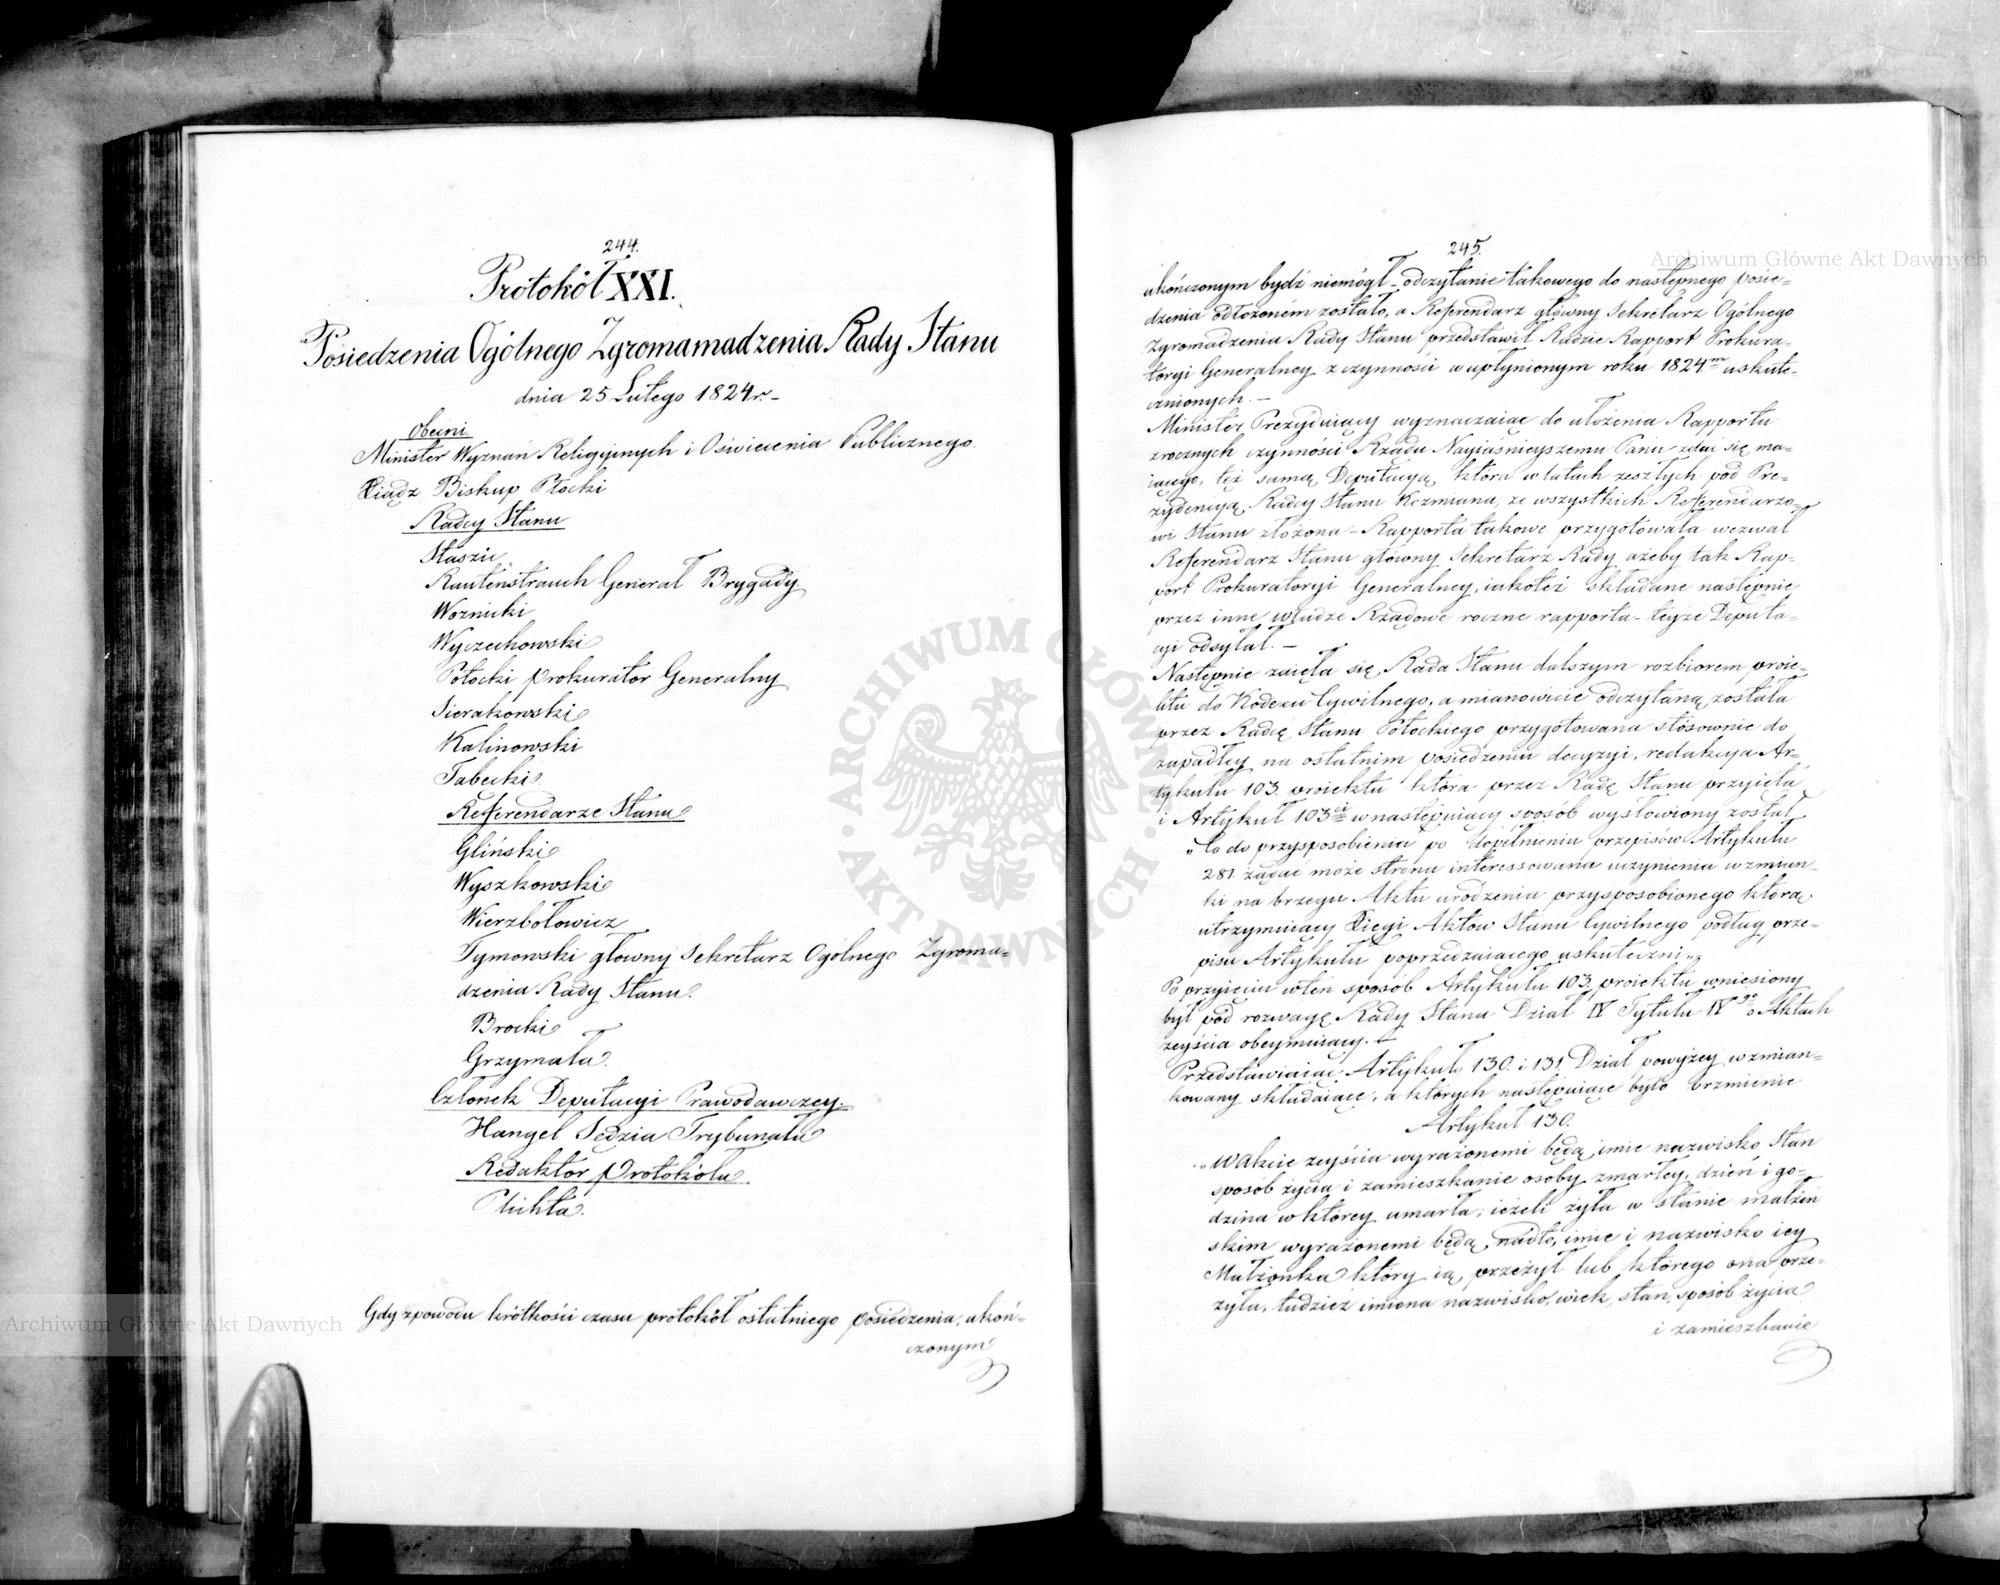 244.
Protokół XXI.
Posiedzenia Ogólnego Zgromamadzenia Rady Stanu
dnia 25 Lutego 1824 r. -
Obecni
Minister Wyznań Religijnych i Oświecenia Publicznego.
Xiądz Biskup Płocki
Radcy Stanu
Staszic
Rautenstrauch Generał Brygady
Woznicki
Wyczechowski
Potocki Prokurator Generalny
Sierakowski
Kalinowski
Tabecki
Referendarze Stanu
Gliński
Wyszkowski
Wierzbołowicz
Tymowski główny Sekretarz Ogólnego Zgroma-
dzenia Rady Stanu.
Brocki
Grzymała.
Członek Deputacyi Prawodawczey.
Hangel Sędzia Trybunału
Redaktor protokółu.
Plichta.
Gdy z powodu krótkości czasu protokół ostatniego posiedzenia, ukoń-
czonym
245.
ukończonym bydź niemógł - odczytanie takowego do następnego posie-
dzenia odłożoném zostało, a Referendarz główny Sekretarz Ogólnego
Zgromadzenia Rady Stanu przedstawił Radzie Rapport Prokura-
toryi Generalney z czynności w upłynionym roku 1824m uskute-
cznionych. -
Minister Prezyduiący wyznaczaiąc do ułożenia Rapportu
zrocznych czynności Rządu Nayiaśnieyszemu Panu zdać się ma-
iącego, też samą Deputacyą która w latach zeszłych pod Pre-
zydencyą Radcy Stanu Kozmiana, ze wszystkich Referendarzo-
wi Stanu złożona - Rapporta takowe przygotowała wezwał
Referendarz Stanu główny Sekretarz Rady ażeby tak Rap-
port Prokuratoryi Generalney, iakoteż składane następnie
przez inne władze Rządowe roczne rapporta - teyże Deputa-
cyi odsyłał. -
Następnie zaięła się Rada Stanu dalszym rozbiorem proie-
ktu do Kodexu Cywilnego, a mianowicie odczytaną została
przez Radcę Stanu Potockiego przygotowana stósownie do
zapadłey na ostatnim posiedzeniu decyzyi, redakcya Ar-
tykułu 103. proiektu która przez Radę Stanu przyięta
i Artykuł 103ci w następuiący sposób wysłowiony został
„Co do przysposobienia po dopełnieniu przepisów Artykułu
281 żądać może strona interessowana uczynienia wzmian-
ki na brzegu Aktu urodzenia przysposobionego którą
utrzymuiący Xięgi Aktów Stanu Cywilnego podług prze-
pisu Artykułu poprzedzaiącego uskuteczni„
Po przyięciu w ten sposób Artykułu 103. proiektu wniesiony
był pod rozwagę Rady Stanu Dział IV Tytułu IVgo o Aktach
zeyścia obeymuiący. -
Przedstawiaiąc Artykuły 130. i 131. Dział powyżey wzmian-
kowany składaiące, a których następuiące było brzmienie
Artykuł 130.
„W Akcie zeyścia wyrażonemi będą imie nazwisko stan
sposób życia i zamieszkanie osoby zmarłey, dzień i go-
dzina w którey umarła; ieżeli żyła w stanie małżeń
skim wyrażonemi będą, nadto, imie i nazwisko iey
Małżonka który ią przeżył lub którego ona prze-
żyła, tudzież imiona nazwisko, wiek, stan, sposób życia
i zamieszkanie
Archiwum Główne Akt Dawnych
Archiwum Główne Akt Dawnych
ARCHIWUM GŁÓWNE AKT DAWNYCH